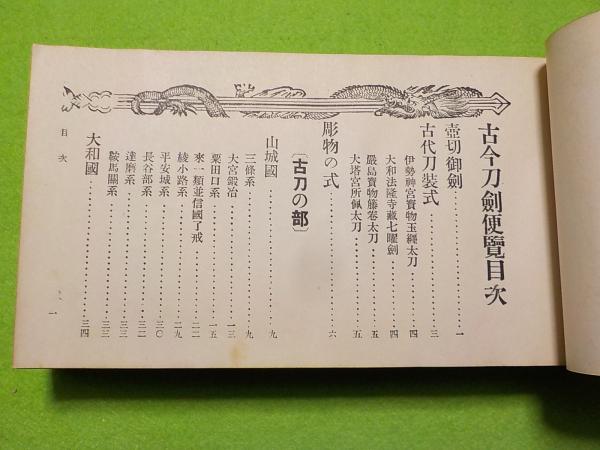 古今刀劍便覽目次
壺切御劍……一
古代刀裝式……三
伊勢神宮寶物玉纒太刀……四
大和法隆寺藏七曜劍……四
嚴島寶物籐卷太刀……五
大塔宮所佩太刀……五
彫物の式……六
〔古刀の部〕
山城國……九
三條系……九
大宮鍛冶……一三
粟田口系……一五
來一類並信國了戒……二二
綾小路系……二九
平安城系……三〇
長谷部系……三二
達磨系……三三
鞍馬關系……三三
大和國……三四
目次
一